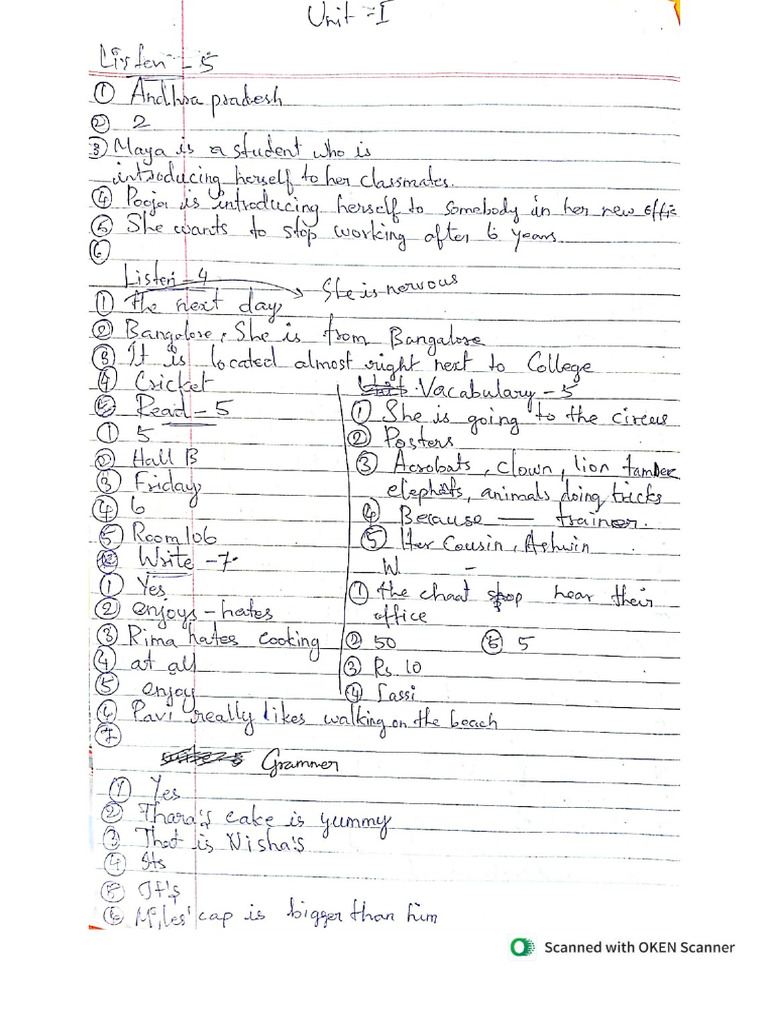 Unit - I
Listen - 5
① Andhra pradesh
② 2
③ Maya is a student who is
introducing herself to her classmates.
④ Pooja is introducing herself to somebody in her new offic
⑤ She wants to stop working after 6 years
⑥
Listen - 4
She is nervous
① The next day
② Bangalore, She is from Bangalore
③ It is located almost right next to College
④ Cricket
⑤ Read - 5
① 5
② Hall B
③ Friday
④ 6
⑤ Room 106
Write - 7
① Yes
② enjoys - hates
③ Rima hates cooking
④ at all
⑤ enjoy
Vacabulary - 5
① She is going to the circus
② Posters
③ Acrobats, clown, lion
animals doing tricks
④ Because — trainer.
⑤ Her Cousin, Ashwin
W -
① the chaat shop near their
office
② 50 ⑤ 5
③ Rs. 10
④ Lassi
⑥ Pavi really likes walking on the beach
⑦
Grammer
① Yes
② Thara's cake is yummy
③ That is Nisha's
④ Its
⑤ It's
⑥ Miles' cap is bigger than him
Scanned with OKEN Scanner